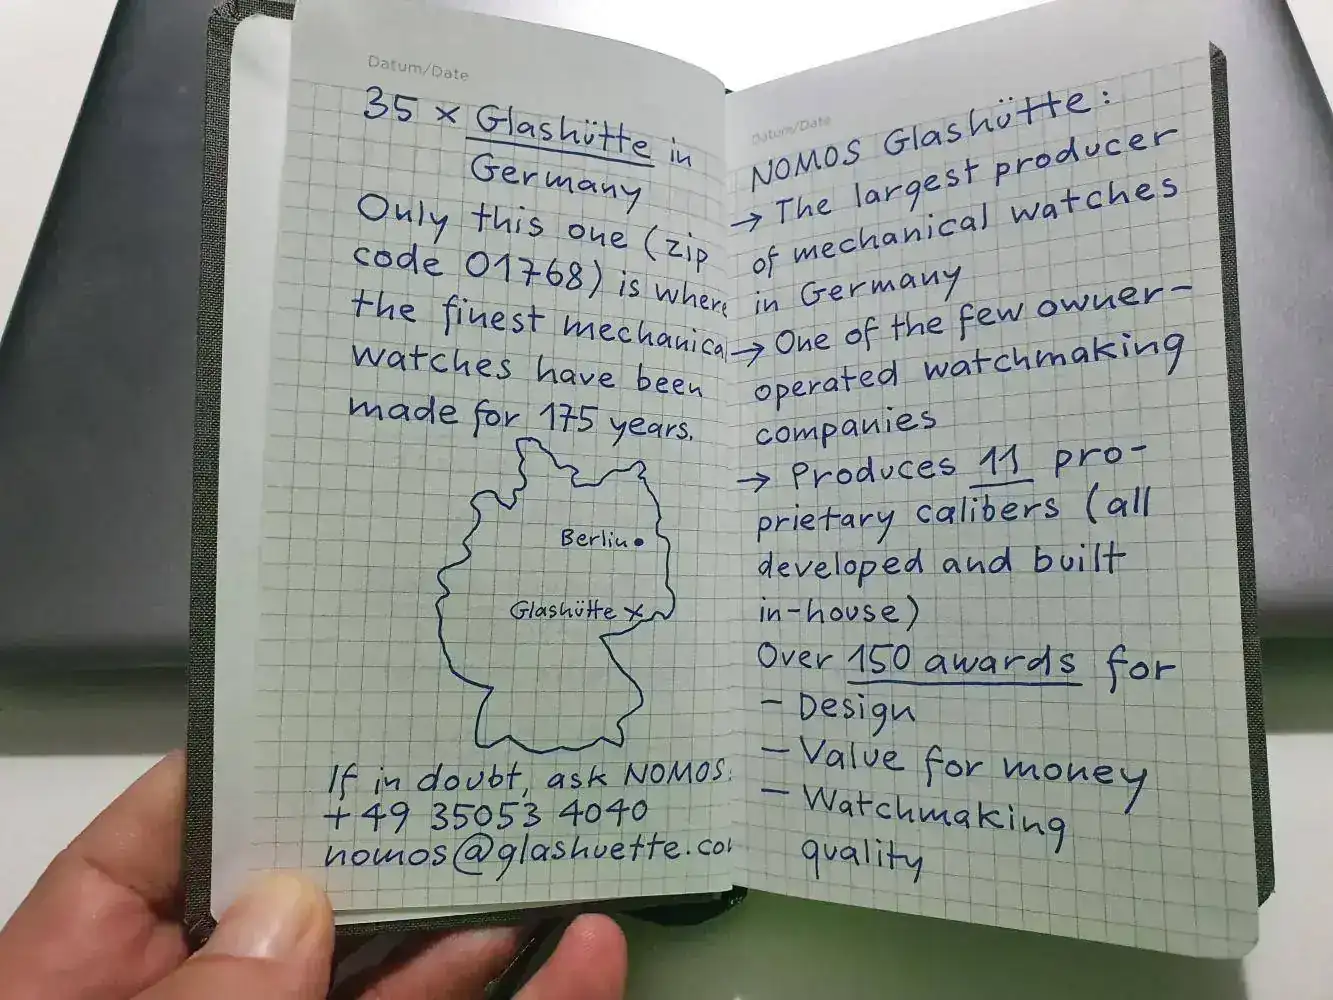 Datum/Date
35 x Glashütte in
Germany
Only this one (zip
code 01768) is where
the finest mechanical
watches have been
made for 175 years.
Berlin
Glashütte x
If in doubt, ask NOMOS:
+49 35053 4040
nomos@glashuette.com
Datum/Date
NOMOS Glashütte:
→ The largest producer
of mechanical watches
in Germany
→ One of the few owner-
operated watchmaking
companies
→ Produces 11 pro-
prietary calibers (all
developed and built
in-house)
Over 150 awards for
- Design
- Value for money
- Watchmaking
quality